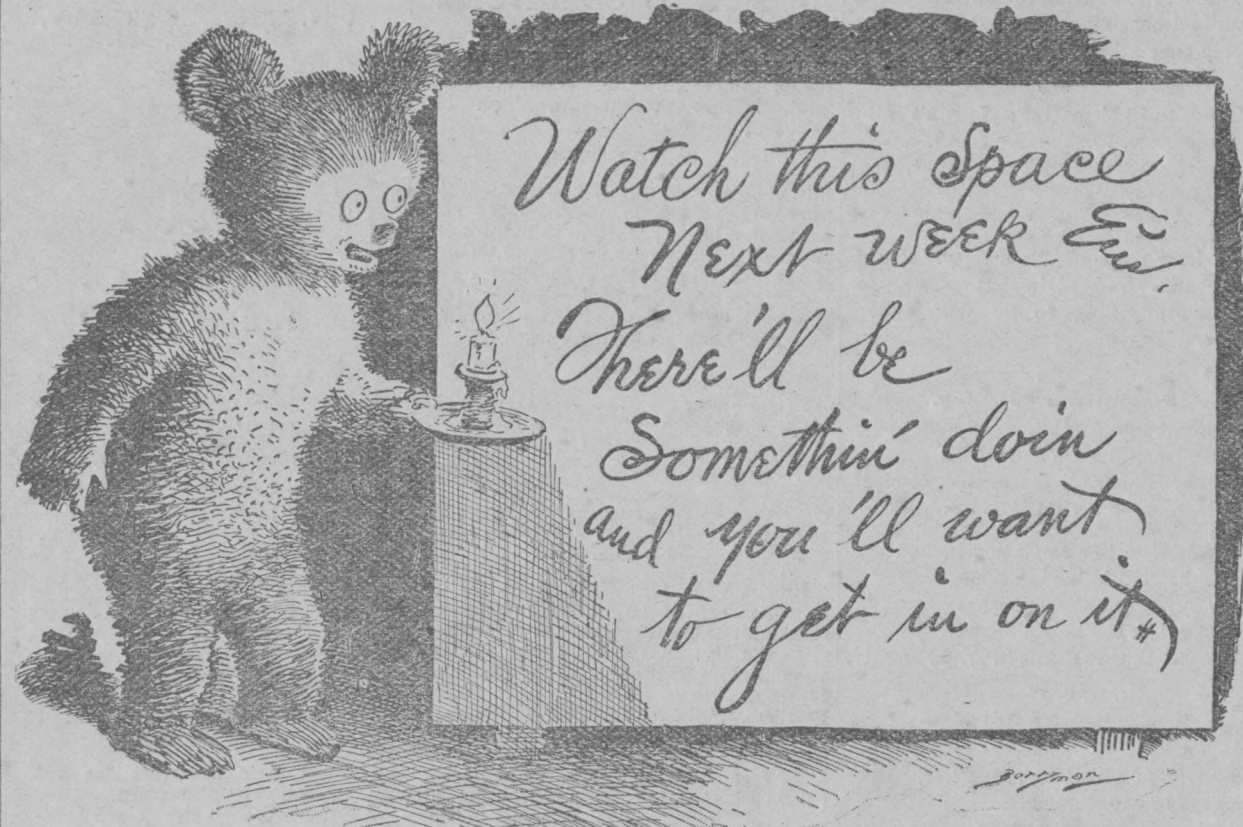 Watch this Space
Next week
There'll be
Somethin' doin
and you'll want
to get in on it
Berryman